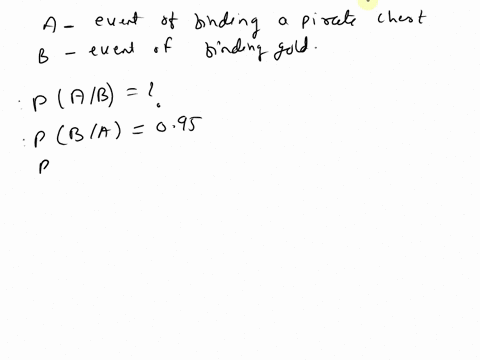 A - event of finding a pirate chest
B - event of finding gold.
: P (A/B) = ?
: P (B/A) = 0.95
P